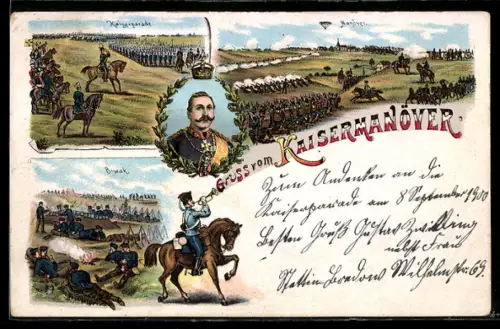 Kaiserparade
Manöver.
Biwak.
Gruss vom KAISERMANÖVER.
Zum Andenken an die
Kaiserparade am 8 September 1900
Besten Gruß Gustav Zwilling
nebst Frau
Stettin-Bredow Wilhelmstr. 69.